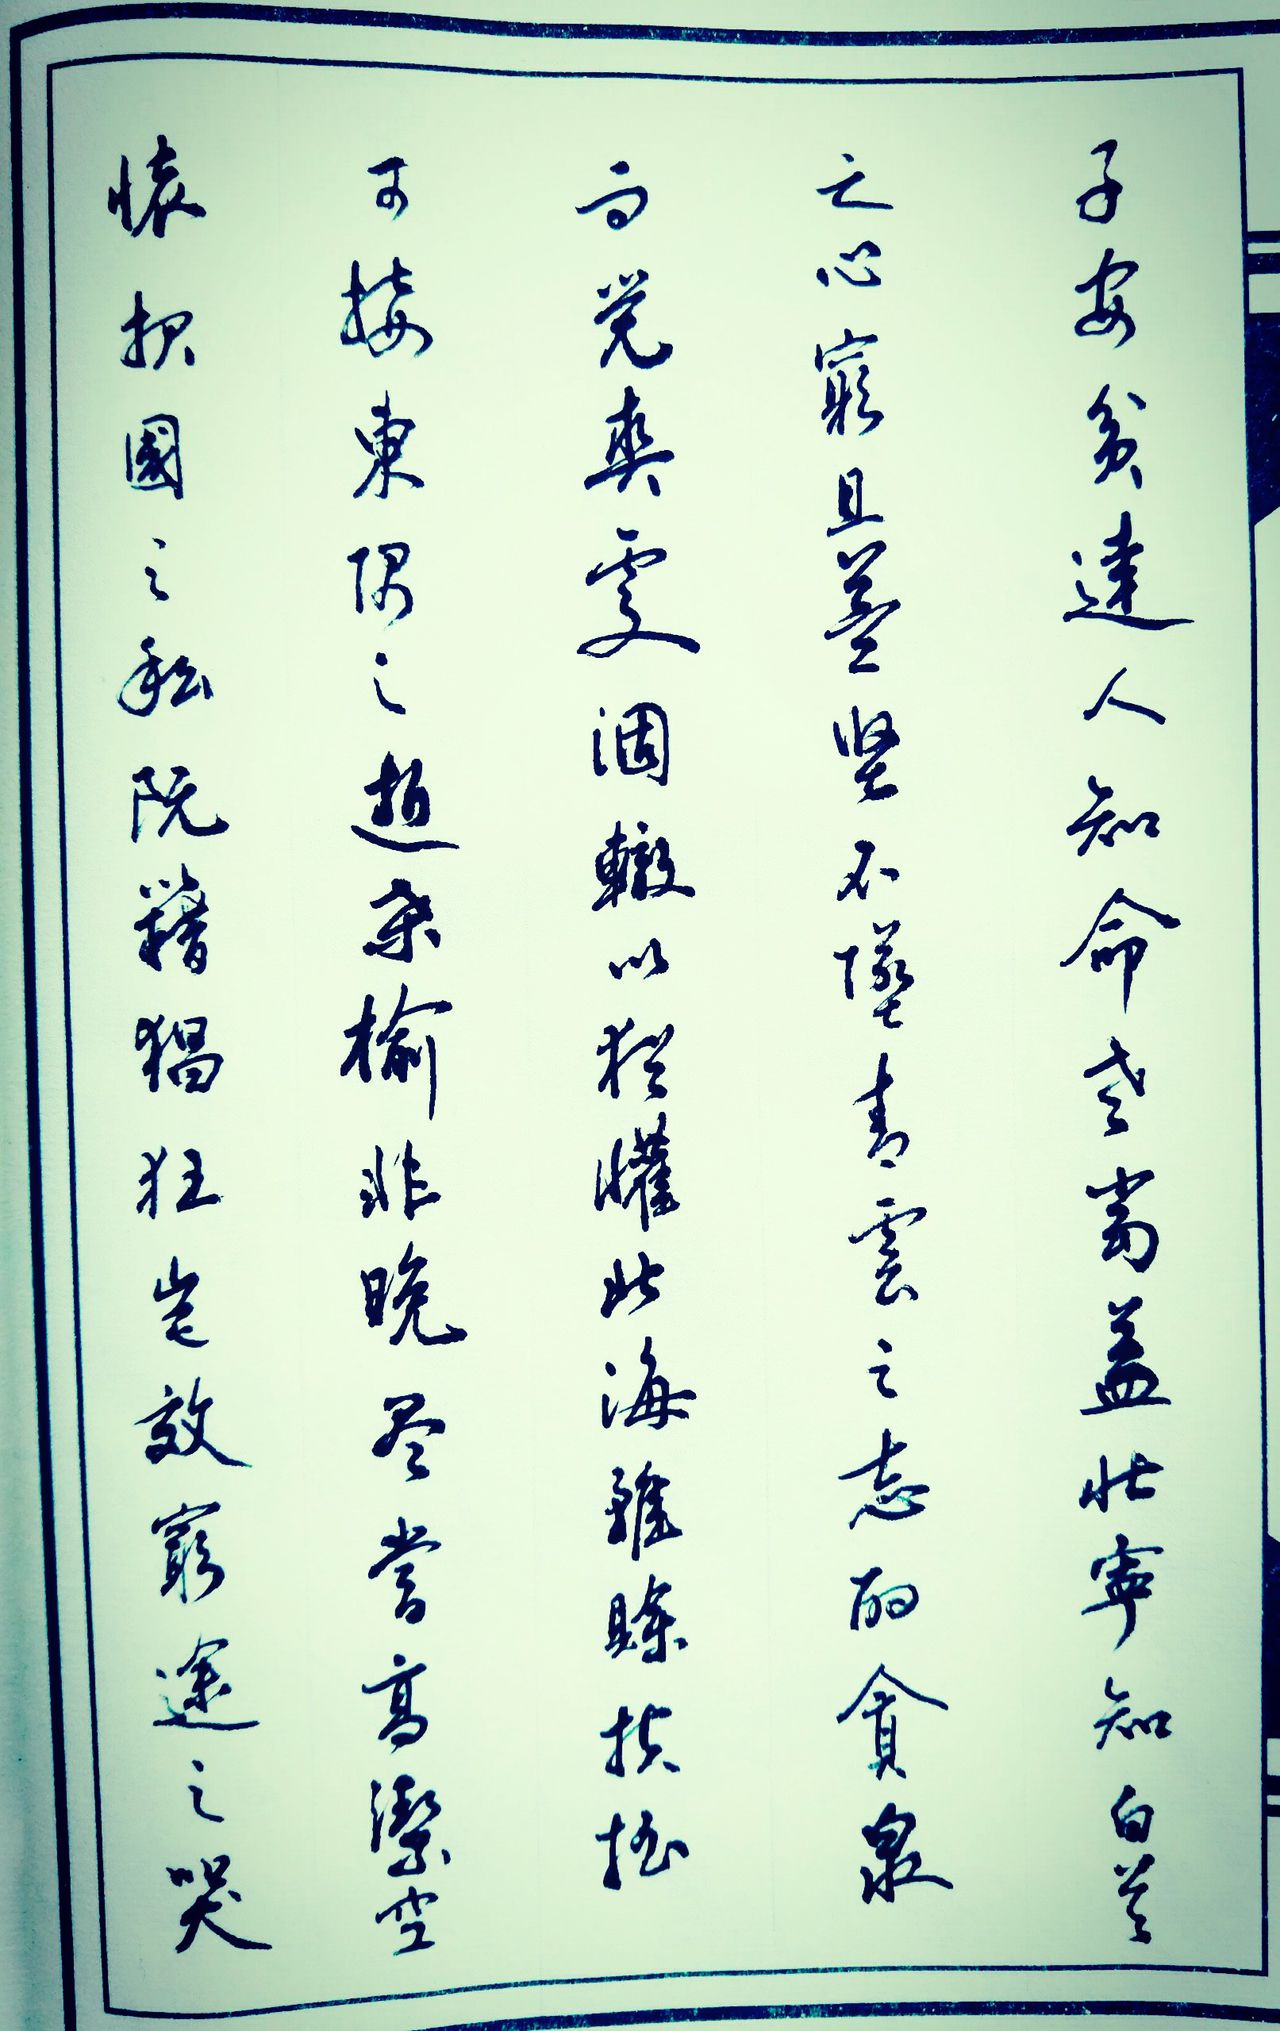 子安貧達人知命老當益壯寧知白首
之心窮且益堅不墜青雲之志酌貪泉
而覺爽處涸轍以猶懽北海雖賒扶搖
可接東隅之逝桑榆非晚孟嘗高潔空
懷报國之私阮籍猖狂豈效窮途之哭